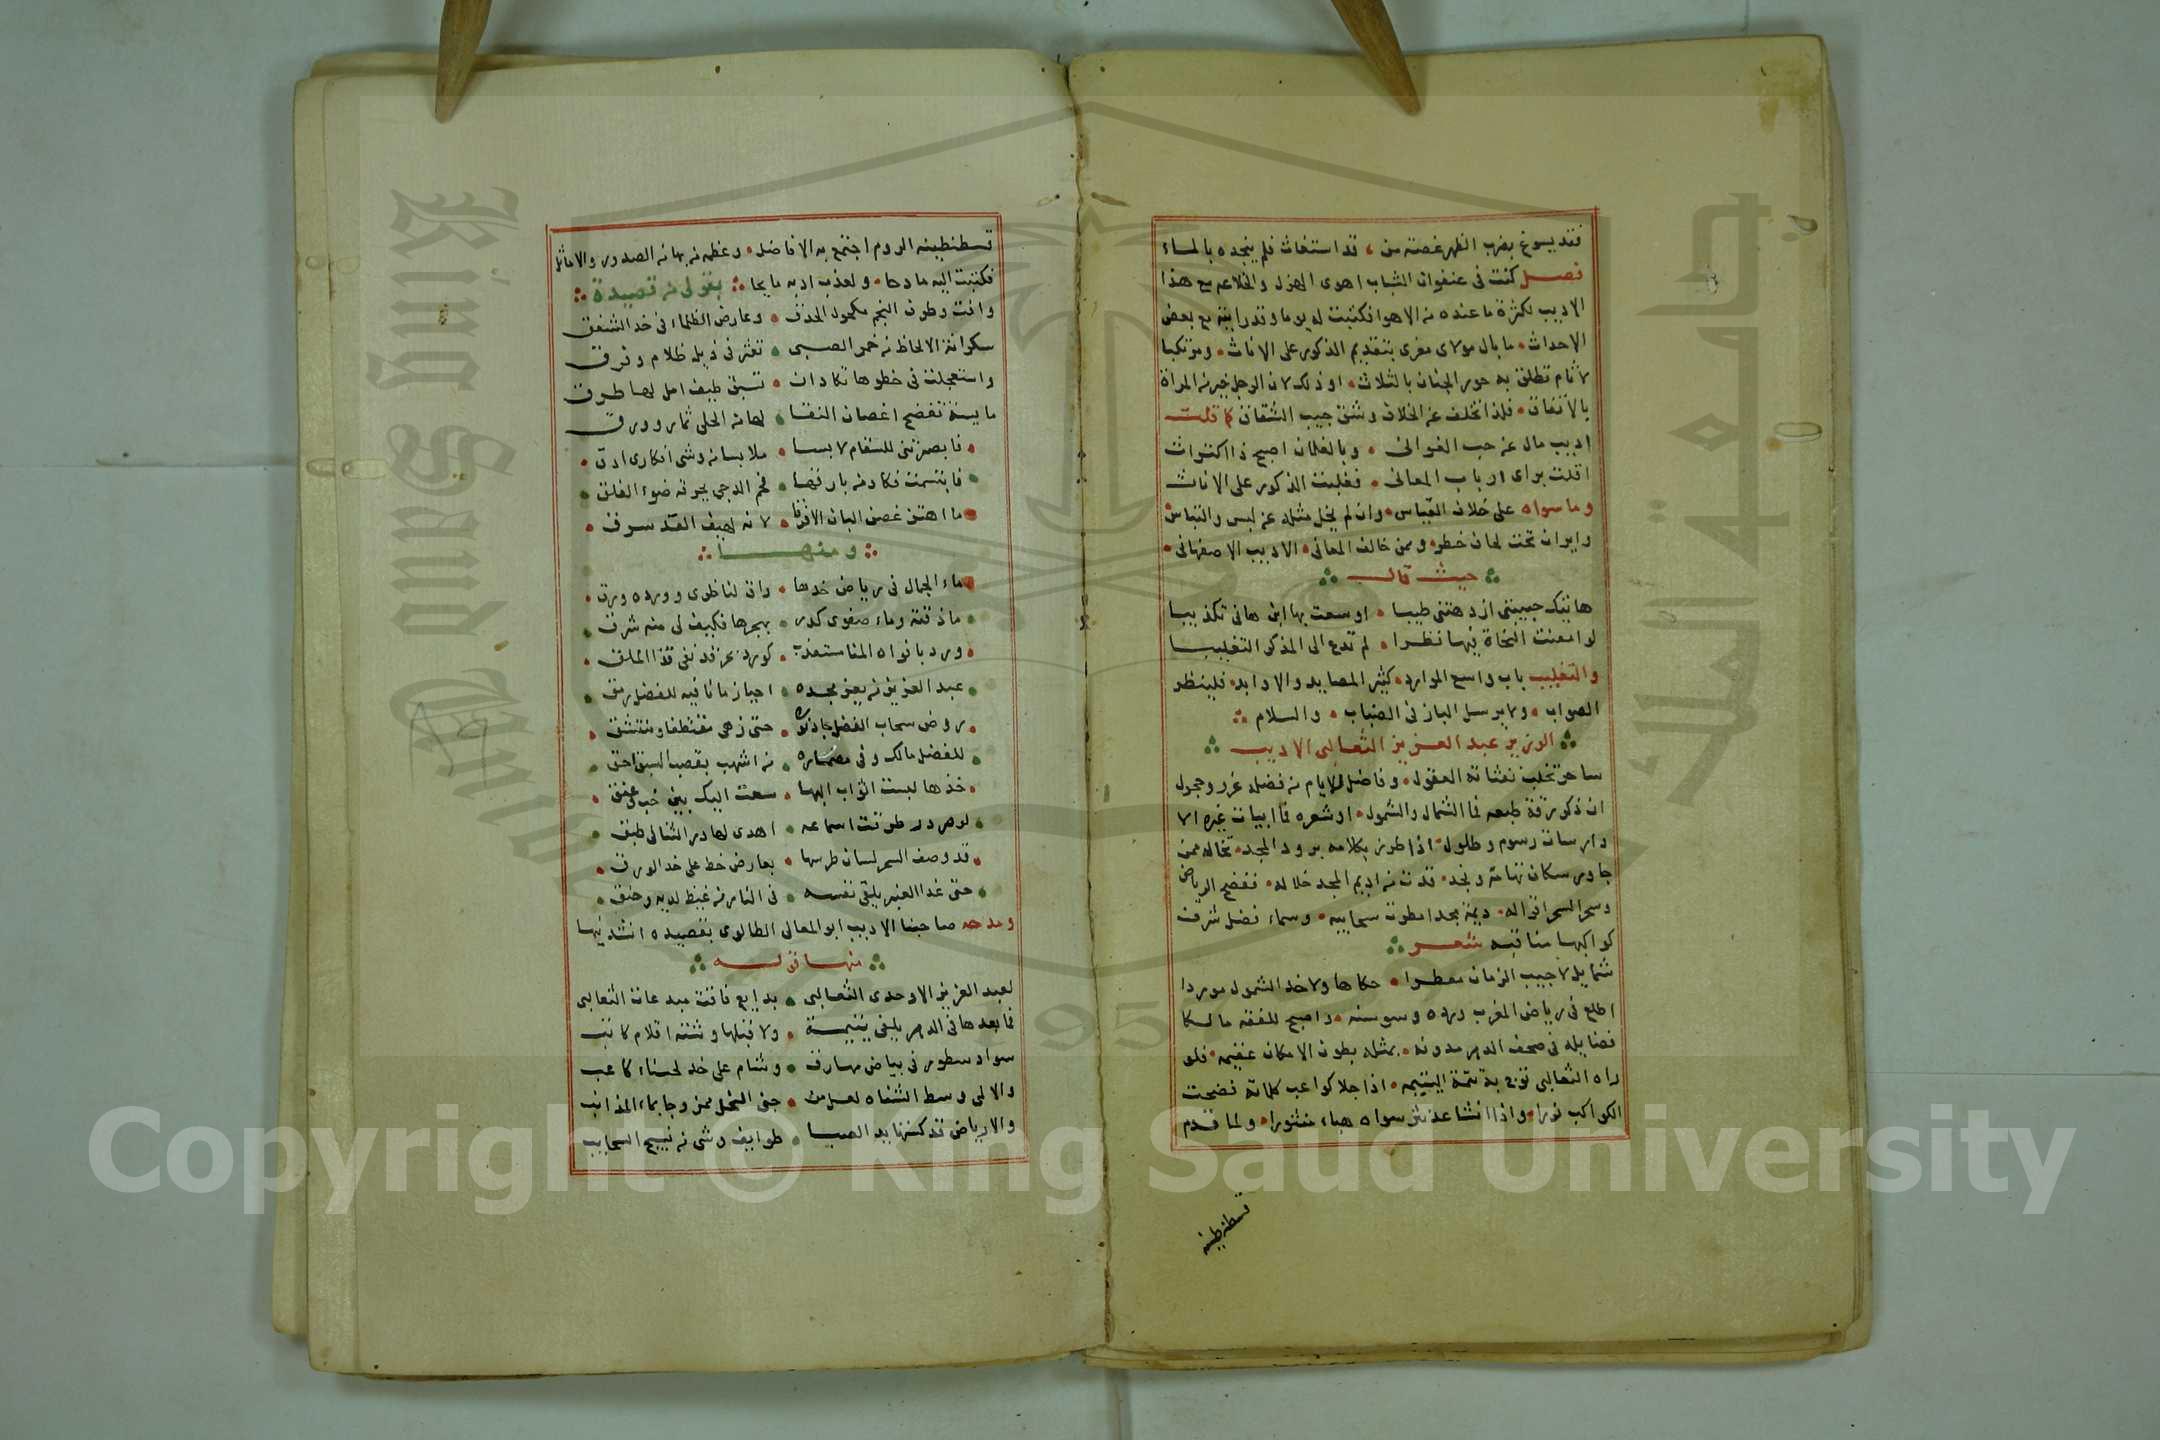 فقد يسوغ بضرب الظهر غصته من ، قد استغاث فلم ينجده بالماء
فصل كنت في عنفوان الشباب اهوى الهزل والخلاعه مع هذا
الاديب لكثرة ما عنده من الاهوا فكتبت له يوما وقد رايته مع بعض
الاحداث ما بال مولاى مغرى بتقديم الذكور على الاناث ومرتكبا
بالاتفاق فلذا تخلف عن الخلاف وشق جيب الشقاق كما قلت
اديب مال عن حب الغوانى وبالغلمان اصبح ذا اكتراث
اقلت براى ارباب المعانى فغلبت الذكور على الاناث
وما سواه على خلاف القياس وان لم يخل مثله عن لبس والتباس
الاديب الاصفهانى
حيث قال
لو امعنت النحاة فيها نظرا لم تدع الى المذكر التغليبا
والتغليب باب واسع الموارد كثير المصايد والاوابد فلينظر
الصواب ولا يرسل الباز في الضباب والسلام
الوزير عبد العزيز الثعالبى الاديب
ساحر تخلب نفثاته العقول وفاضل للايام من فضله غرر وحجول
ان ذكر رقة طبعه فما الشمال والشمول او شعره فما ابيات غيره الا
دارسات رسوم وطلول اذا طرز بكلامه برود المجد تخاله ممن
جاور سكان تهامة ونجد قدت من اديم المجد خلاله ففضح الرياض
وسحر السحر اقواله ديمة مجد امطرت سحايبه وسماء فضل شرقت
كواكبها مناقبه شعر
شمايل لا جيب الزمان معطرا حكاها ولا خد الشمول موردا
اطلع في رياض المغرب ورده وسوسنه واصبح للفقه مالكا
فضايله في صحف الدهر مدونه بمثله بطون الامكان عقيمه فلو
راه الثعالبى توج به يتمة اليتيمه اذا جلا كواعب كلماته فضحت
الكواكب نورا واذا انشا عد نثر سواه هباء منثورا ولما قدم
قسطنطينه
قسطنطينه الروم اجتمع به الافاضل وعظمته بها من الصدور والاماثل
فكتبت اليه مادحا ولعذب ادبه مايحا بقولى من قصيدة
وافت وطرف النجم مكحول الحدق وعارض الظلماء في خد الشفق
سكرانة الالحاظ من خمر الصبى تعثر في ذيل ظلام وغرق
واستعجلت في خطوها تكاد ان تسبق طيف امل لها طرق
مايسة تفضح اغصان النقا لها من الحلى ثمار وورق
فابصرتنى للسقام لابسا ملابسا من وشى افكارى ادق
فابتسمت فكاد من بارقها فحم الدجى يحرقه ضوء الفلق
ما اهتز غصن البان الا فرقا لانه لهيف القد سرق
ومنها
ماء الجمال في رياض خدها راق لناظرى وورده ورق
ما ذقته وماء صفوى كدر بهجرها فكيف لى منه شرق
ورد بافواه المنا مستعذب كورد بحر قد نفى قذا الملق
عبد العزيز من بعز مجده احياز مانا فيه للفضل رمق
روض سحاب الفضل جادته حتى زهى مقتطفا ومنتشق
للفضل مالك وفي مضماره من اشهب بقصب السبق احق
خذها لبست اثواب البها سعت اليك بين خب وعنق
لو هر در طوقت اسماعه اهدى لها در الثنا لى طبق
قد وصف السحر لسان طرسها بعارض خط على خد الورق
حتى غدا العنبر يلقى نفسه في النار من غيظ لديه وحنق
ومدحه صاحبنا الاديب ابو المعالى الطالوى بقصيده انشدنيها
منها قوله
لعبد العزيز الاوحدى الثعالبى بدايع فاقت مبدعات الثعالبى
فما بعدها في الدهر يلفى يتيمة ولا قبلها وشته اقلام كاتب
سواد سطور في بياض مهارق وشام على خد لحسناء كاعب
والا لمى وسط الشفاه لعس جنى النحل ممزوجا بماء المذانب
والا رياض قد كستها يد الصبا طرايف وشى من نسيج السحايب